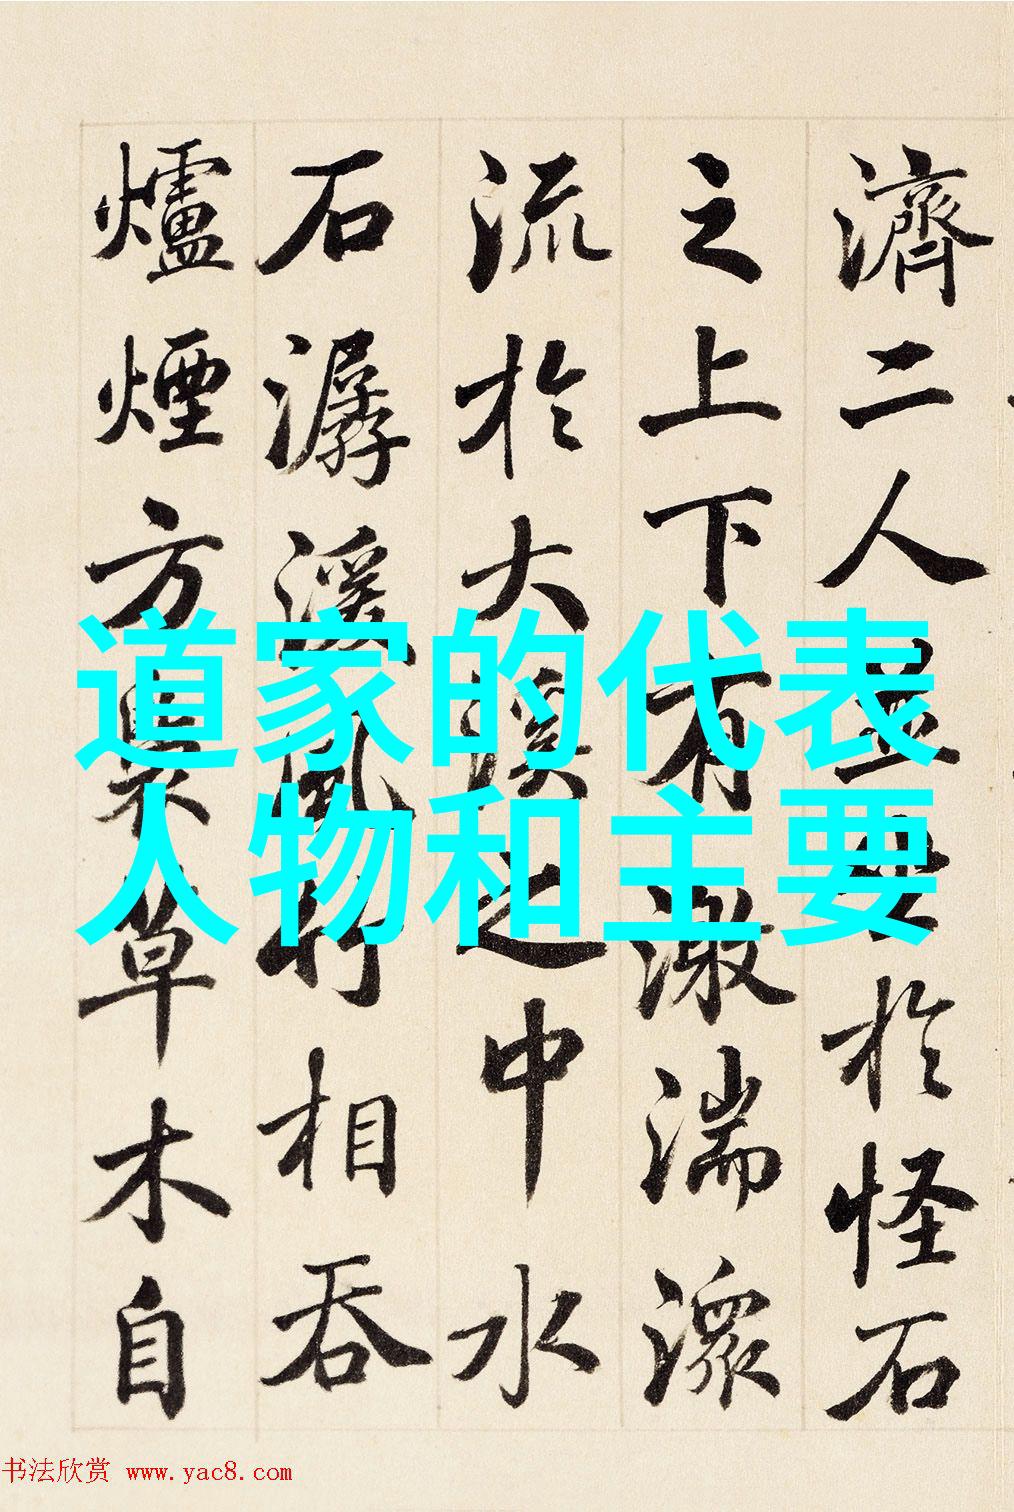 道家的代表
人物和主要
濟二人並坐於怪石
之上下有激湍潨
流於大溪之中水
石潺湲風竹相吞
爐煙方裊草木自
书法欣赏 www.yac8.com